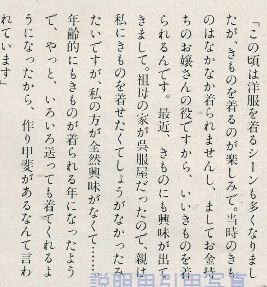 「この頃は洋服を着るシーンも多くなりまし
たが、きものを着るのが楽しみで。当時のきも
のはなかなか着られませんし、ましてお金持
ちのお嬢さんの役ですから、いいきものを着
られるんです。最近、きものにも興味が出て
きまして。祖母の家が呉服屋だったので、親は
私にきものを着せたくてしょうがなかったみ
たいですが、私の方が全然興味がなくて……
年齢的にもきものが着られる年になったよう
で、やっと、いろいろ送っても着てくれるよ
うになったから、作り甲斐があるなんて言わ
れています」
説明用引用写真